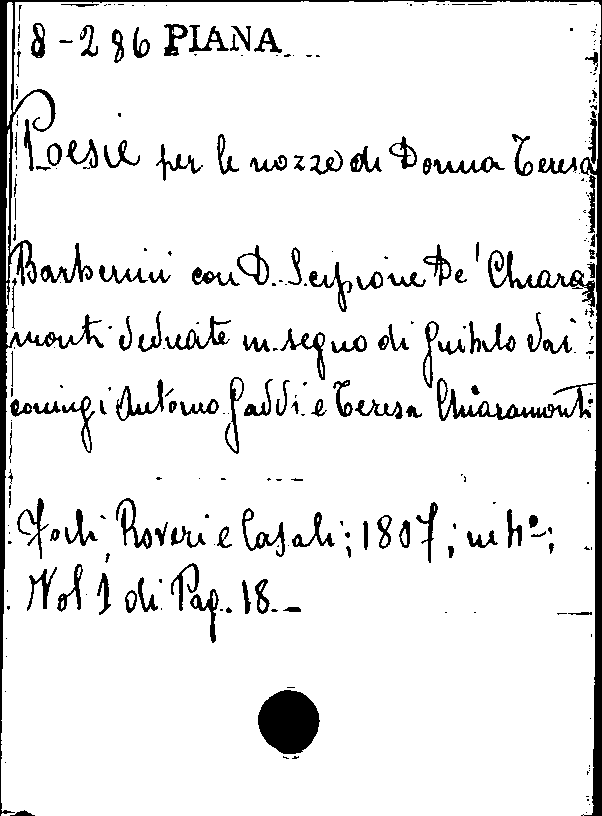 8-286 PIANA
Poesie per le nozze di Donna Teresa
Barberini con D. Scipione De' Chiara
monti dedicate in segno di giubilo dai
coniugi Antonio Gaddi e Teresa Chiaramonti
Forlì, Roveri e Casali; 1807; in 4º;
Vol 1 di Pag. 18.—